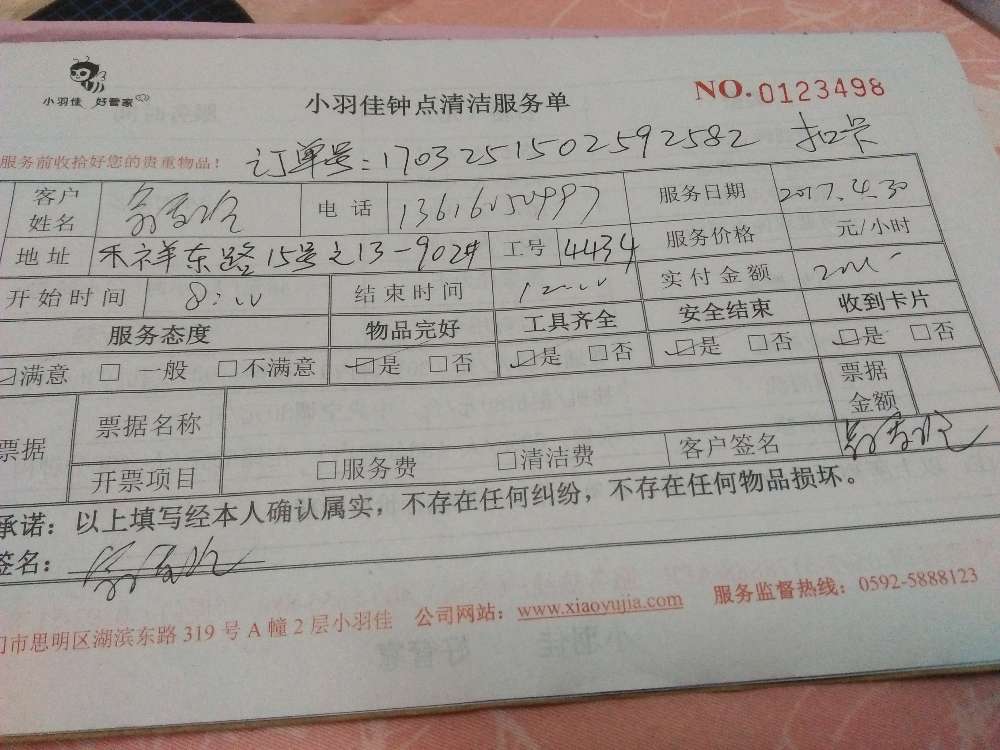 小羽佳 好管家
小羽佳钟点清洁服务单
NO.0123498
服务前收拾好您的贵重物品!
订单号:1703251502592582 扣卡
客户姓名 电话 服务日期 2017.4.30
地址 禾祥东路15号之13-902# 工号 4434 服务价格 元/小时
开始时间 8:00 结束时间 12:00 实付金额
服务态度 物品完好 工具齐全 安全结束 收到卡片
☑满意 □一般 □不满意 ☑是 □否 ☑是 □否 ☑是 □否 ☑是 □否
票据 票据名称 票据金额
开票项目 □服务费 □清洁费 客户签名
承诺:以上填写经本人确认属实,不存在任何纠纷,不存在任何物品损坏。
签名:
门市思明区湖滨东路 319 号 A 幢 2 层小羽佳 公司网站:www.xiaoyujia.com 服务监督热线:0592-5888123